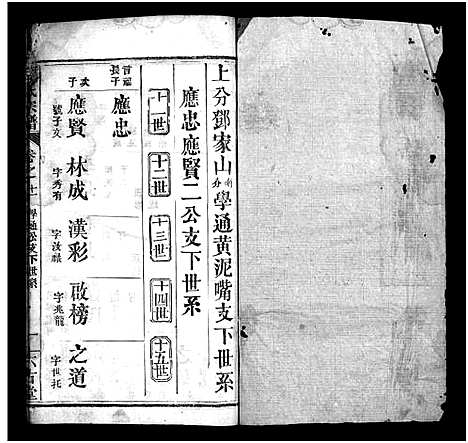 上分鄧家山分學通黃泥嘴支下世系
應忠應賢二公支下世系
十一世 十二世 十三世 十四世 十五世
長子 應忠
次子 應賢 林成 漢彩 啟榜 之道
號子友 字秀有 字汝祿 字兆龍 字世托
氏宗譜 卷之十 學通公支下世系 一 六古堂